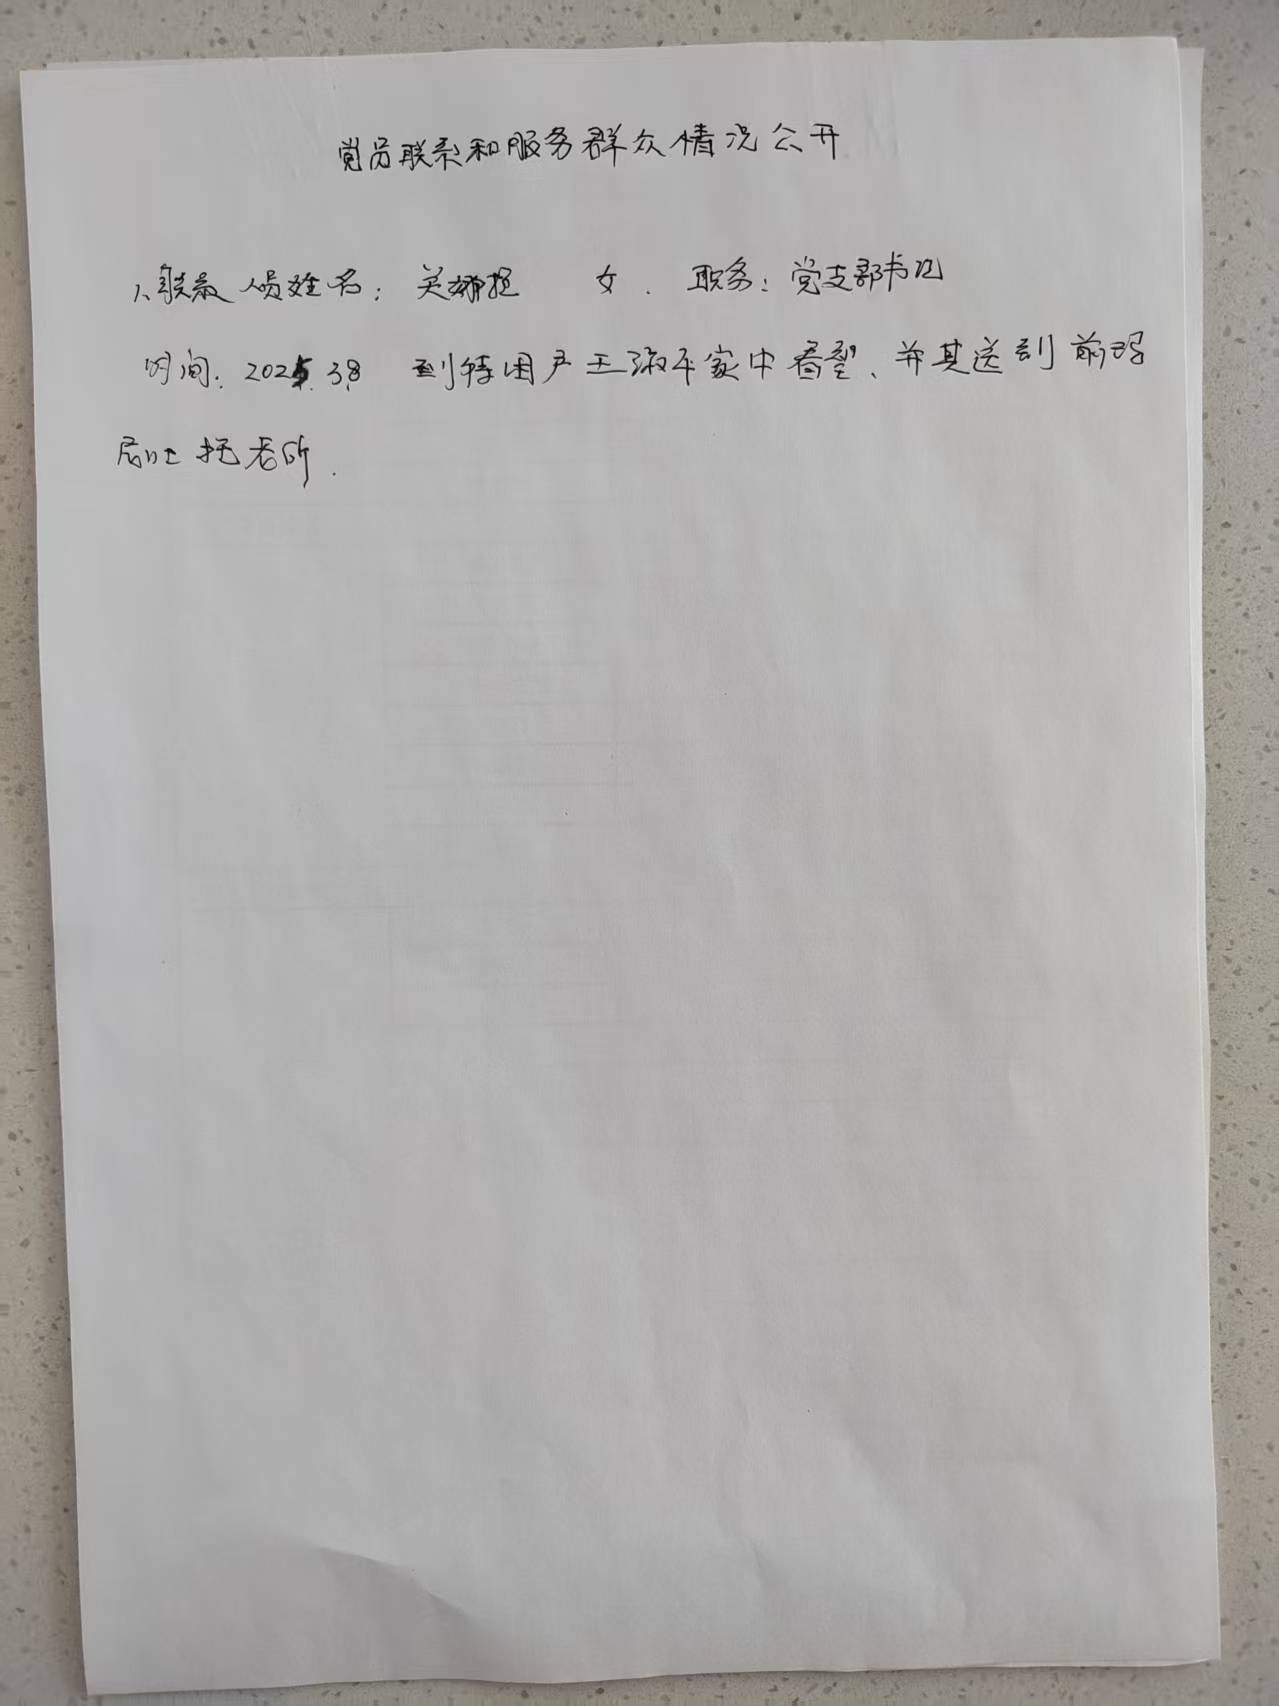 党员联系和服务群众情况公开
1、联系人员姓名: 关娜 女. 职务:党支部书记
时间:2025.3.8 到特困户王淑平家中看望、并其送到前玛
托老所.